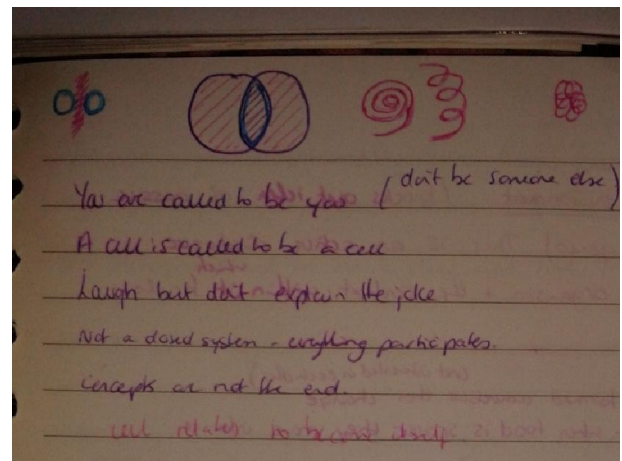 You are called to be you (don't be someone else)
A cell is called to be a cell
Laugh but don't explain the joke
Not a closed system - everything participates.
Concepts are not the end.
cell relates to become itself